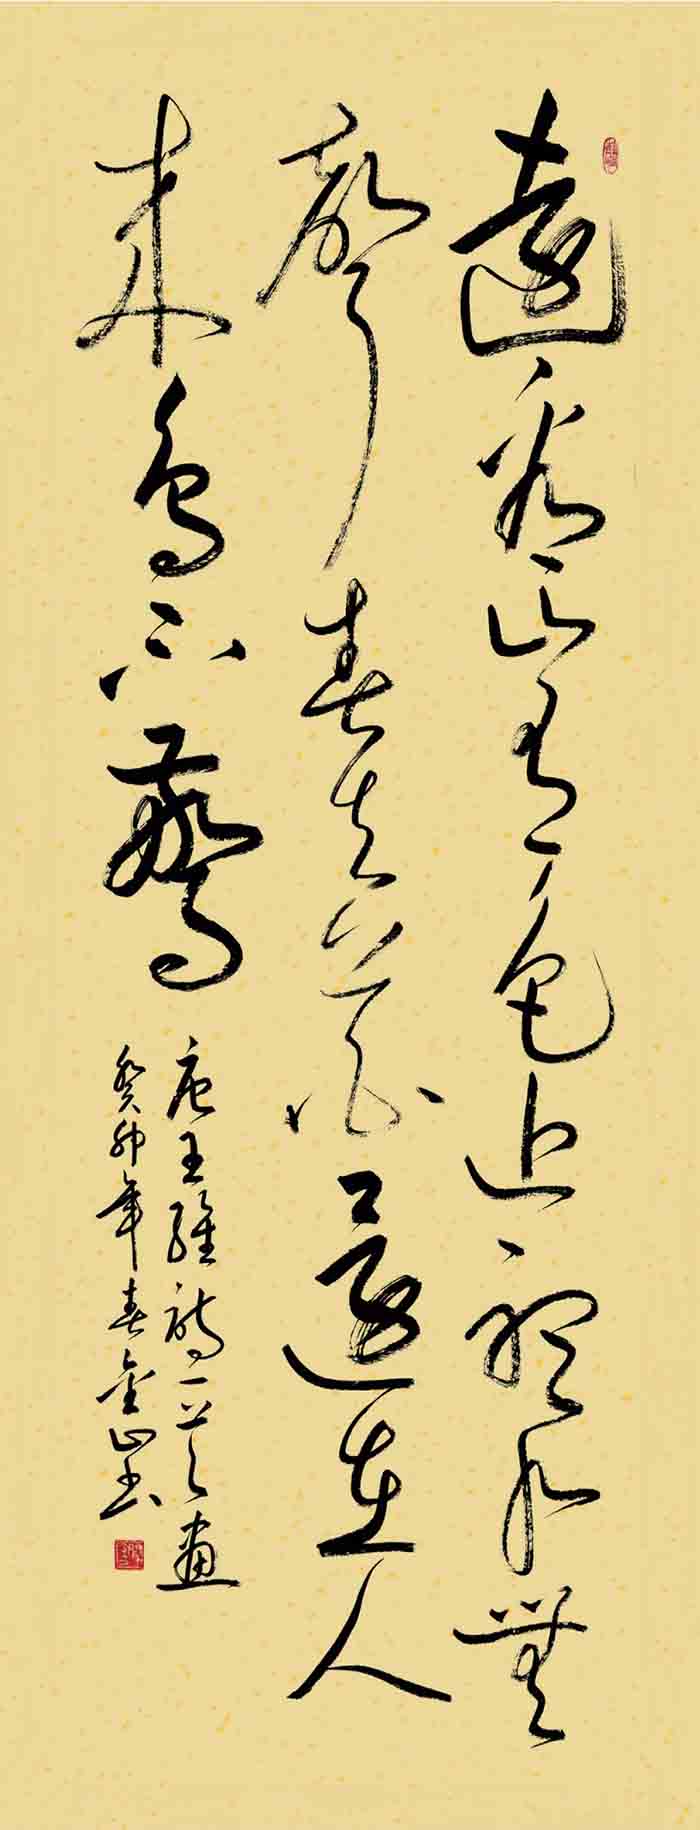 遠看山有色近聽水無
聲春去花還在人
來鳥不驚
唐王維詩一首畫
癸卯年春金山書